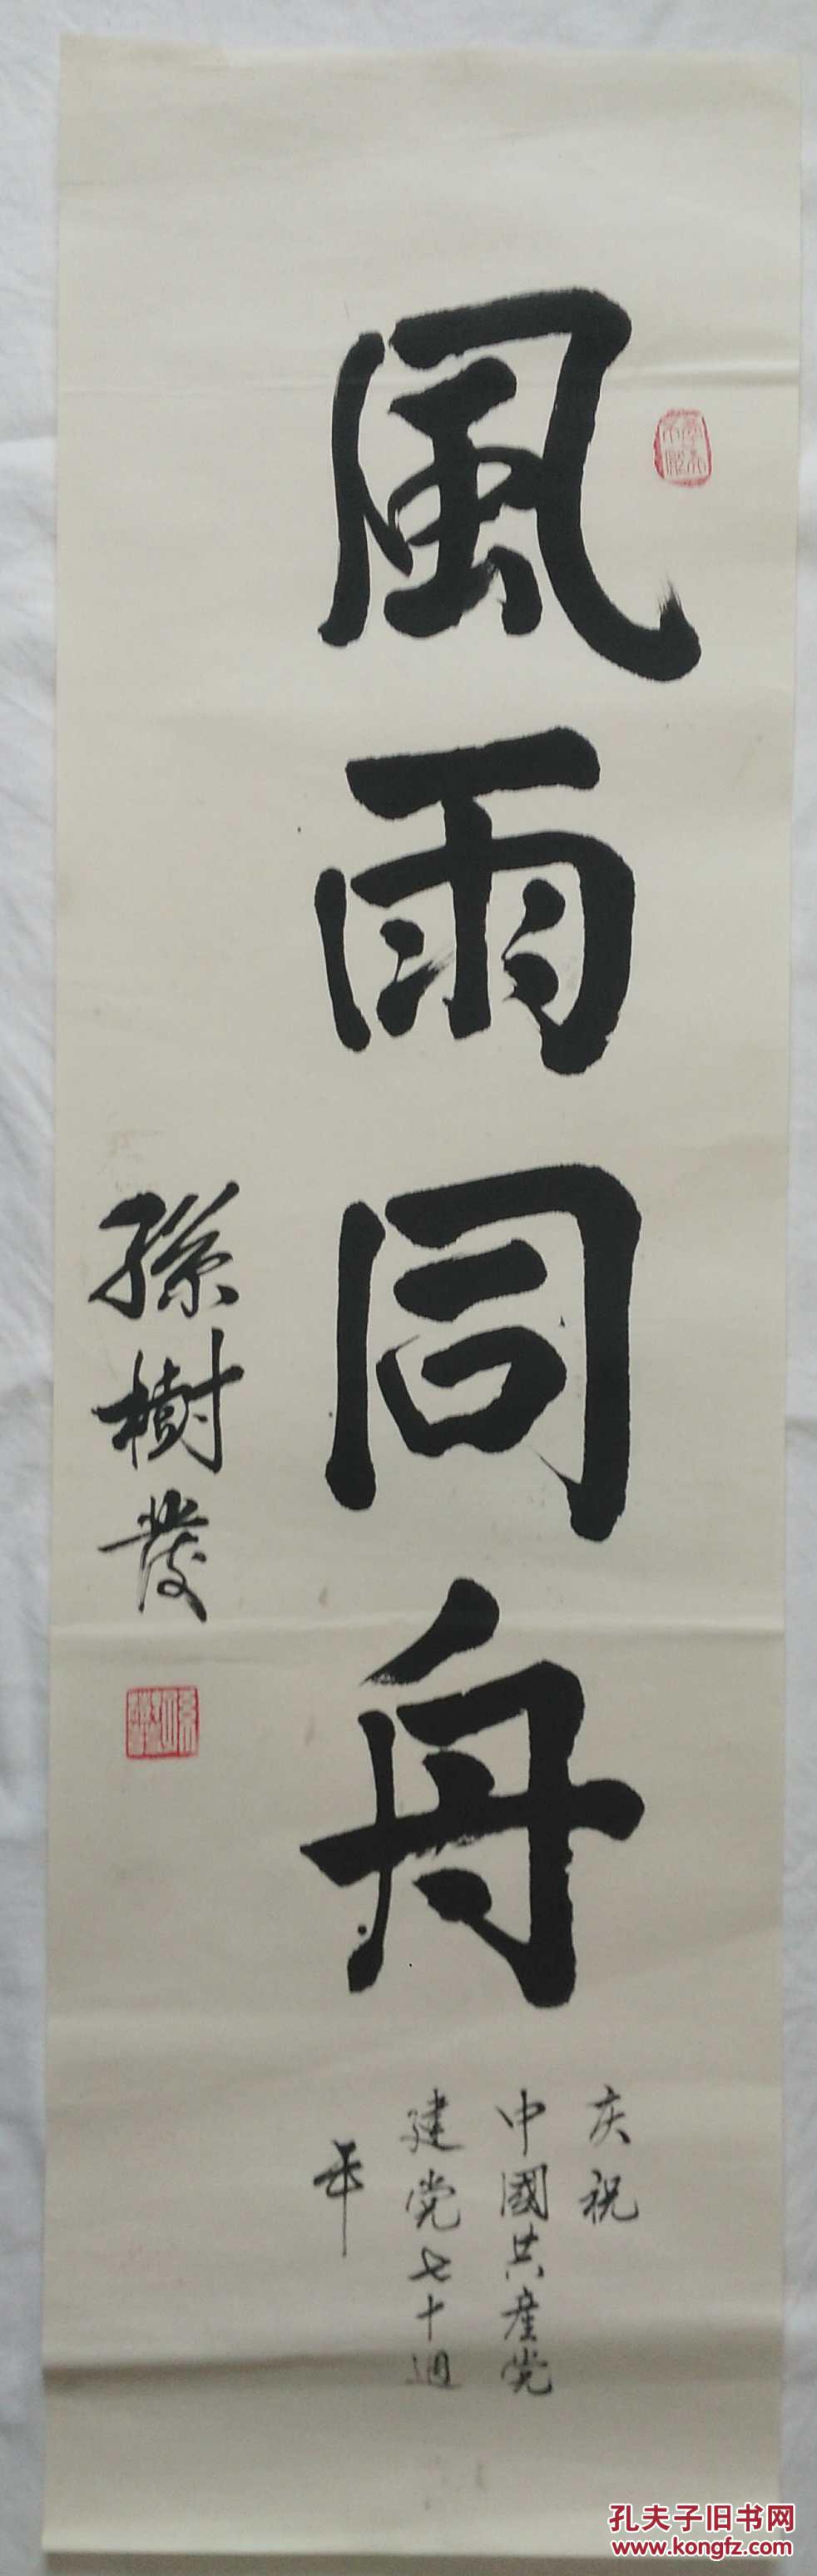 風雨同舟
庆祝
中國共產党
建党七十週
年
孫樹發
孔夫子旧书网
www.kongfz.com